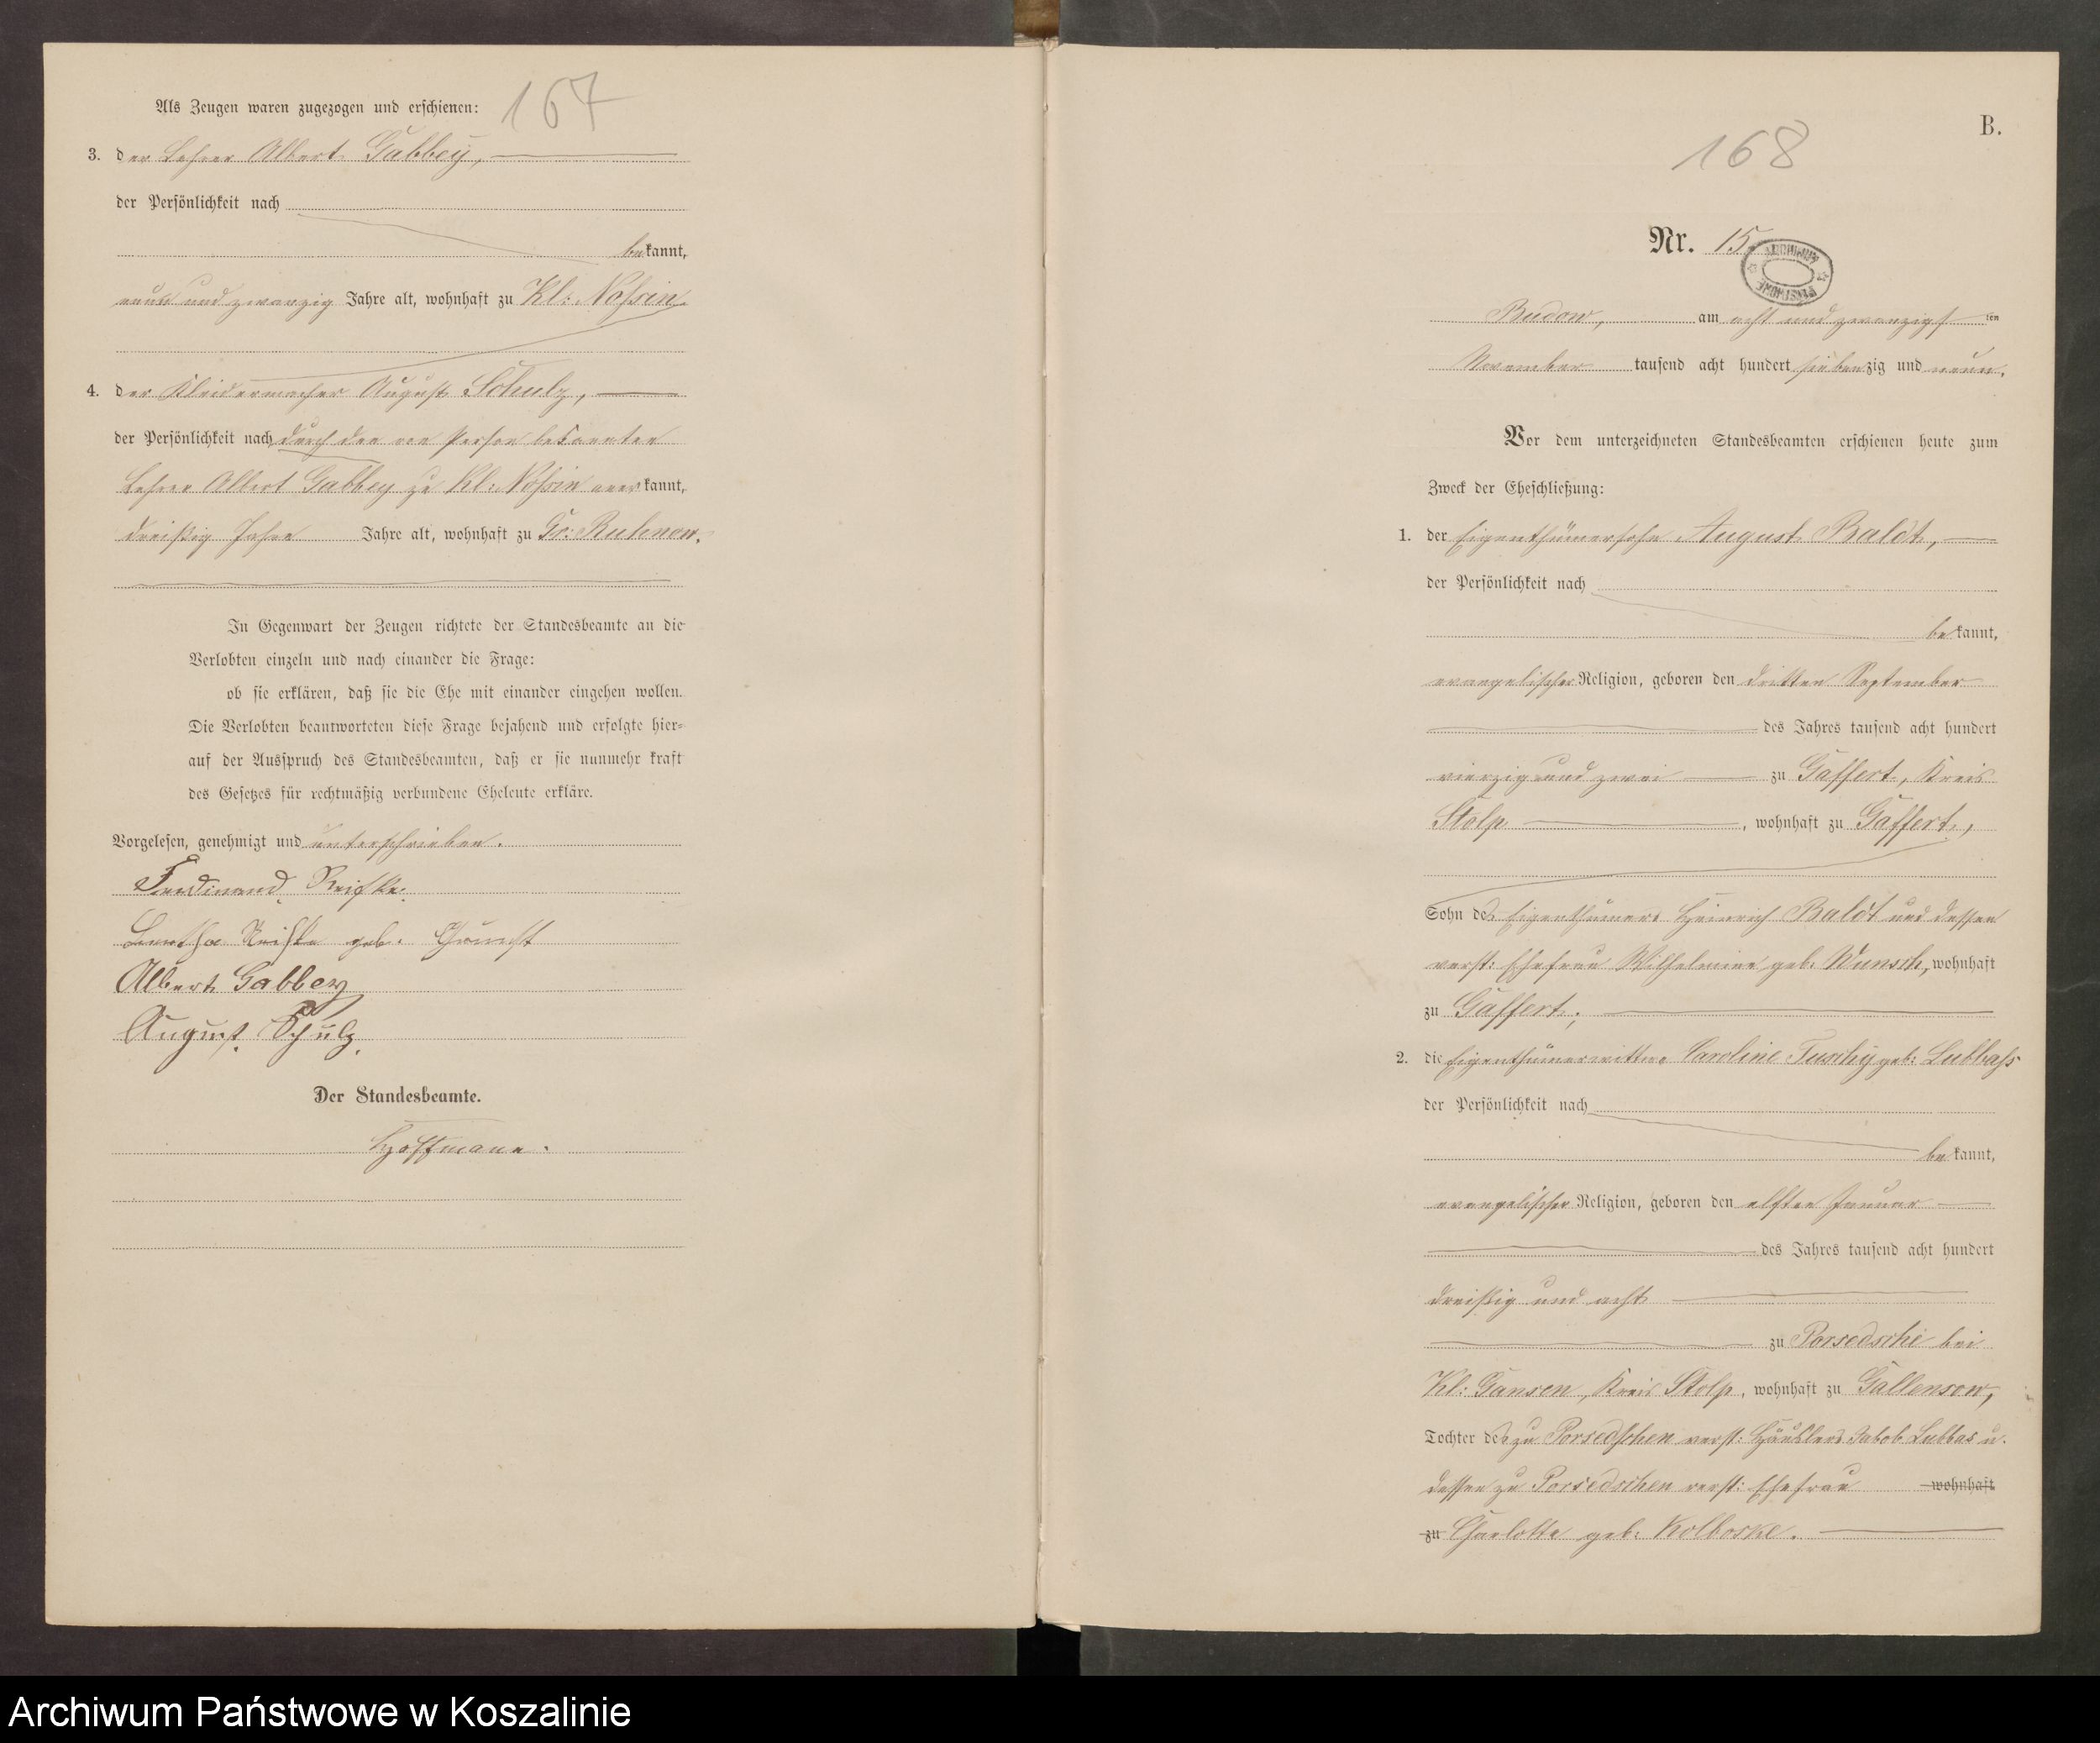 167
Als Zeugen waren zugezogen und erschienen:
3. der Lehrer Albert Gabbey,
der Persönlichkeit nach
bekannt,
neun und zwanzig Jahre alt, wohnhaft zu Kl: Nossin
4. der Kleidermacher August Schulz,
der Persönlichkeit nach durch den von Person bekannten
Lehrer Albert Gabbey zu Kl: Nossin anerkannt,
dreißig Jahre Jahre alt, wohnhaft zu Gr: Ruhnow.
In Gegenwart der Zeugen richtete der Standesbeamte an die
Verlobten einzeln und nach einander die Frage:
ob sie erklären, daß sie die Ehe mit einander eingehen wollen.
Die Verlobten beantworteten diese Frage bejahend und erfolgte hier-
auf der Ausspruch des Standesbeamten, daß er sie nunmehr kraft
des Gesetzes für rechtmäßig verbundene Eheleute erkläre.
Vorgelesen, genehmigt und unterschrieben.
Ferdinand Reischke.
geb.
Albert Gabbey
August Schulz.
Der Standesbeamte.
Hoffmann.
B.
168
Nr. 15
Budow, am acht und zwanzigsten
November tausend acht hundert siebenzig und neun.
Vor dem unterzeichneten Standesbeamten erschienen heute zum
Zweck der Eheschließung:
1. der Eigenthümersohn August Baldt,
der Persönlichkeit nach
bekannt,
evangelischer Religion, geboren den dritten September
des Jahres tausend acht hundert
vierzig und zwei zu Gaffert, Kreis
Stolp, wohnhaft zu Gaffert,
Sohn des Eigenthümers Heinrich Baldt und dessen
verst: Ehefrau Wilhelmine geb. Wunsch, wohnhaft
zu Gaffert;
2. die Eigenthümerwittwe Caroline Tuschy geb: Lubbass
der Persönlichkeit nach
bekannt,
evangelischer Religion, geboren den elften Januar
des Jahres tausend acht hundert
dreißig und acht
zu Porsedschi bei
Kl: Gansen, Kreis Stolp, wohnhaft zu Gallensow,
Tochter des zu Porsedschen verst: Häuslers Jakob Lubbas u.
dessen zu Porsedschen verst: Ehefrau wohnhaft
zu Charlotte geb: Kolboske.
Archiwum Państwowe w Koszalinie